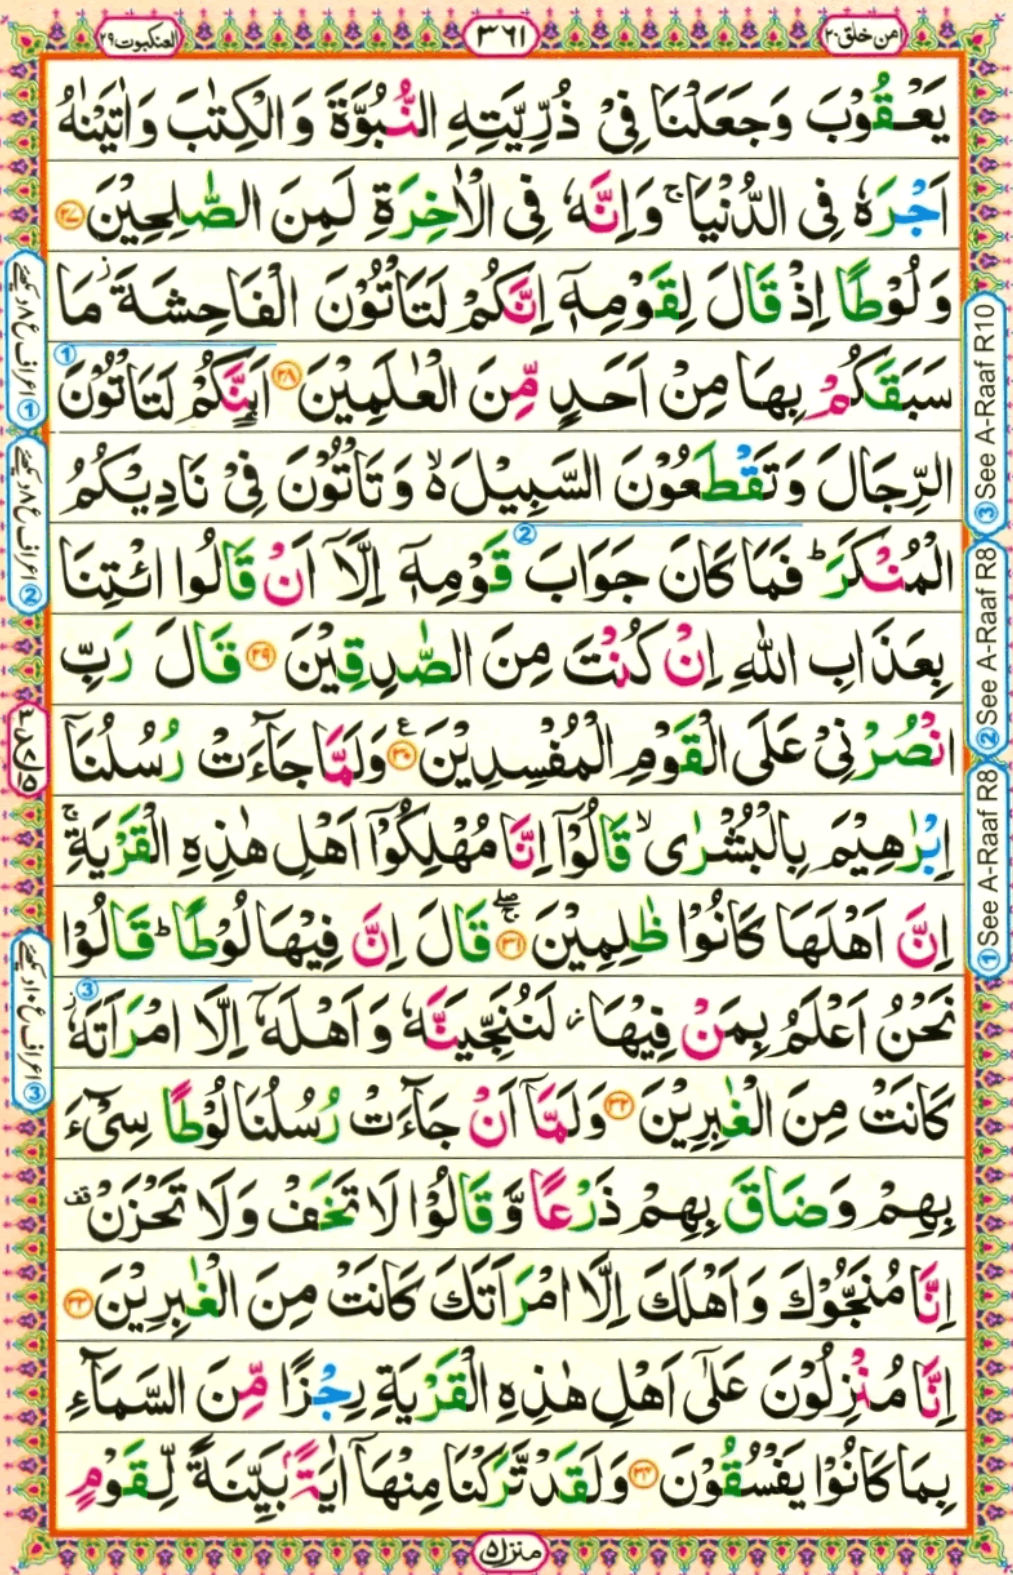 امن خلق ٢٠
٣٦١
العنكبوت ٢٩
يَعْقُوْبَ وَجَعَلْنَا فِيْ ذُرِّيَّتِهِ النُّبُوَّةَ وَالْكِتٰبَ وَاٰتَيْنٰهُ
اَجْرَهٗ فِي الدُّنْيَا ۚ وَاِنَّهٗ فِي الْاٰخِرَةِ لَمِنَ الصّٰلِحِيْنَ ٢٧
وَلُوْطًا اِذْ قَالَ لِقَوْمِهٖٓ اِنَّكُمْ لَتَاْتُوْنَ الْفَاحِشَةَ ۡ مَا
سَبَقَكُمْ بِهَا مِنْ اَحَدٍ مِّنَ الْعٰلَمِيْنَ ٢٨ اَئِنَّكُمْ لَتَاْتُوْنَ
الرِّجَالَ وَتَقْطَعُوْنَ السَّبِيْلَ ۙ وَتَاْتُوْنَ فِيْ نَادِيْكُمُ
الْمُنْكَرَ ؕ فَمَا كَانَ جَوَابَ قَوْمِهٖٓ اِلَّآ اَنْ قَالُوا ائْتِنَا
بِعَذَابِ اللّٰهِ اِنْ كُنْتَ مِنَ الصّٰدِقِيْنَ ٢٩ قَالَ رَبِّ
انْصُرْنِيْ عَلَى الْقَوْمِ الْمُفْسِدِيْنَ ٣٠ وَلَمَّا جَآءَتْ رُسُلُنَآ
اِبْرٰهِيْمَ بِالْبُشْرٰى ۙ قَالُوْٓا اِنَّا مُهْلِكُوْٓا اَهْلِ هٰذِهِ الْقَرْيَةِ ۚ
اِنَّ اَهْلَهَا كَانُوْا ظٰلِمِيْنَ ٣١ قَالَ اِنَّ فِيْهَا لُوْطًا ؕ قَالُوْا
نَحْنُ اَعْلَمُ بِمَنْ فِيْهَا ۡ لَنُنَجِّيَنَّهٗ وَاَهْلَهٗٓ اِلَّا امْرَاَتَهٗ ۡ
كَانَتْ مِنَ الْغٰبِرِيْنَ ٣٢ وَلَمَّآ اَنْ جَآءَتْ رُسُلُنَا لُوْطًا سِيْٓءَ
بِهِمْ وَضَاقَ بِهِمْ ذَرْعًا وَّقَالُوْا لَا تَخَفْ وَلَا تَحْزَنْ قف
اِنَّا مُنَجُّوْكَ وَاَهْلَكَ اِلَّا امْرَاَتَكَ كَانَتْ مِنَ الْغٰبِرِيْنَ ٣٣
اِنَّا مُنْزِلُوْنَ عَلٰٓى اَهْلِ هٰذِهِ الْقَرْيَةِ رِجْزًا مِّنَ السَّمَآءِ
بِمَا كَانُوْا يَفْسُقُوْنَ ٣٤ وَلَقَدْ تَّرَكْنَا مِنْهَآ اٰيَةًۢ بَيِّنَةً لِّقَوْمٍ
منزل ٥
① اعراف ع ٨ دیکھئے
② اعراف ع ٨ دیکھئے
③ اعراف ع ١٠ دیکھئے
③ See A-Raaf R10
② See A-Raaf R8
① See A-Raaf R8